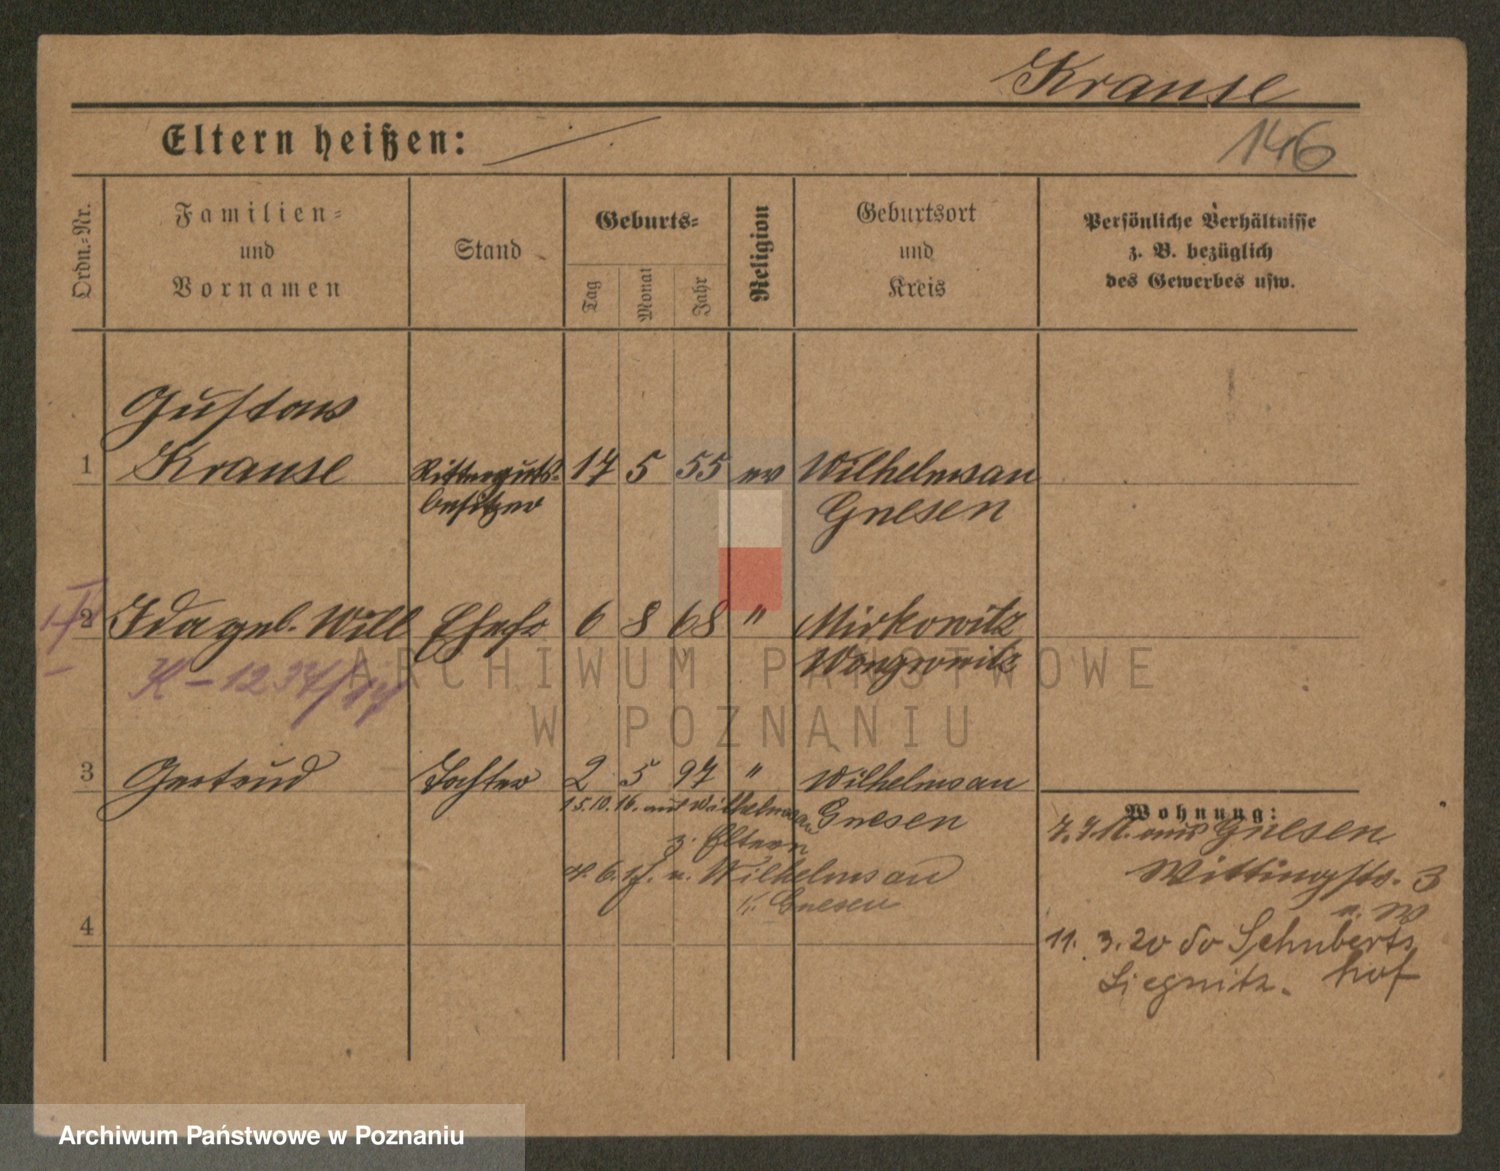 Krause
Eltern heißen:
146
Ordn.-Nr.
Familien-
und
Vornamen
Stand
Geburts-
Tag
Monat
Jahr
Religion
Geburtsort
und
Kreis
Persönliche Verhältnisse
z. B. bezüglich
des Gewerbes usw.
Gustav
1 Krause Ritterguts- 17 5 55 ev Wilhelmsau
besitzer Gnesen
2 Ida geb. Will Ehefr 6 8 68 " Mirkowitz
Wongrowitz
K-1234/
ARCHIWUM PAŃSTWOWE
W POZNANIU
3 Gertrud Tochter 2 5 97 " Wilhelmsau
15.10.16. aus Wilhelmsau Gnesen
z. Eltern
6. n. Wilhelmsau
K. Gnesen
4
Wohnung:
aus Gnesen
Wittingstr. 3
11. 3. 20 do Schuberts
hof
Liegnitz.
Archiwum Państwowe w Poznaniu